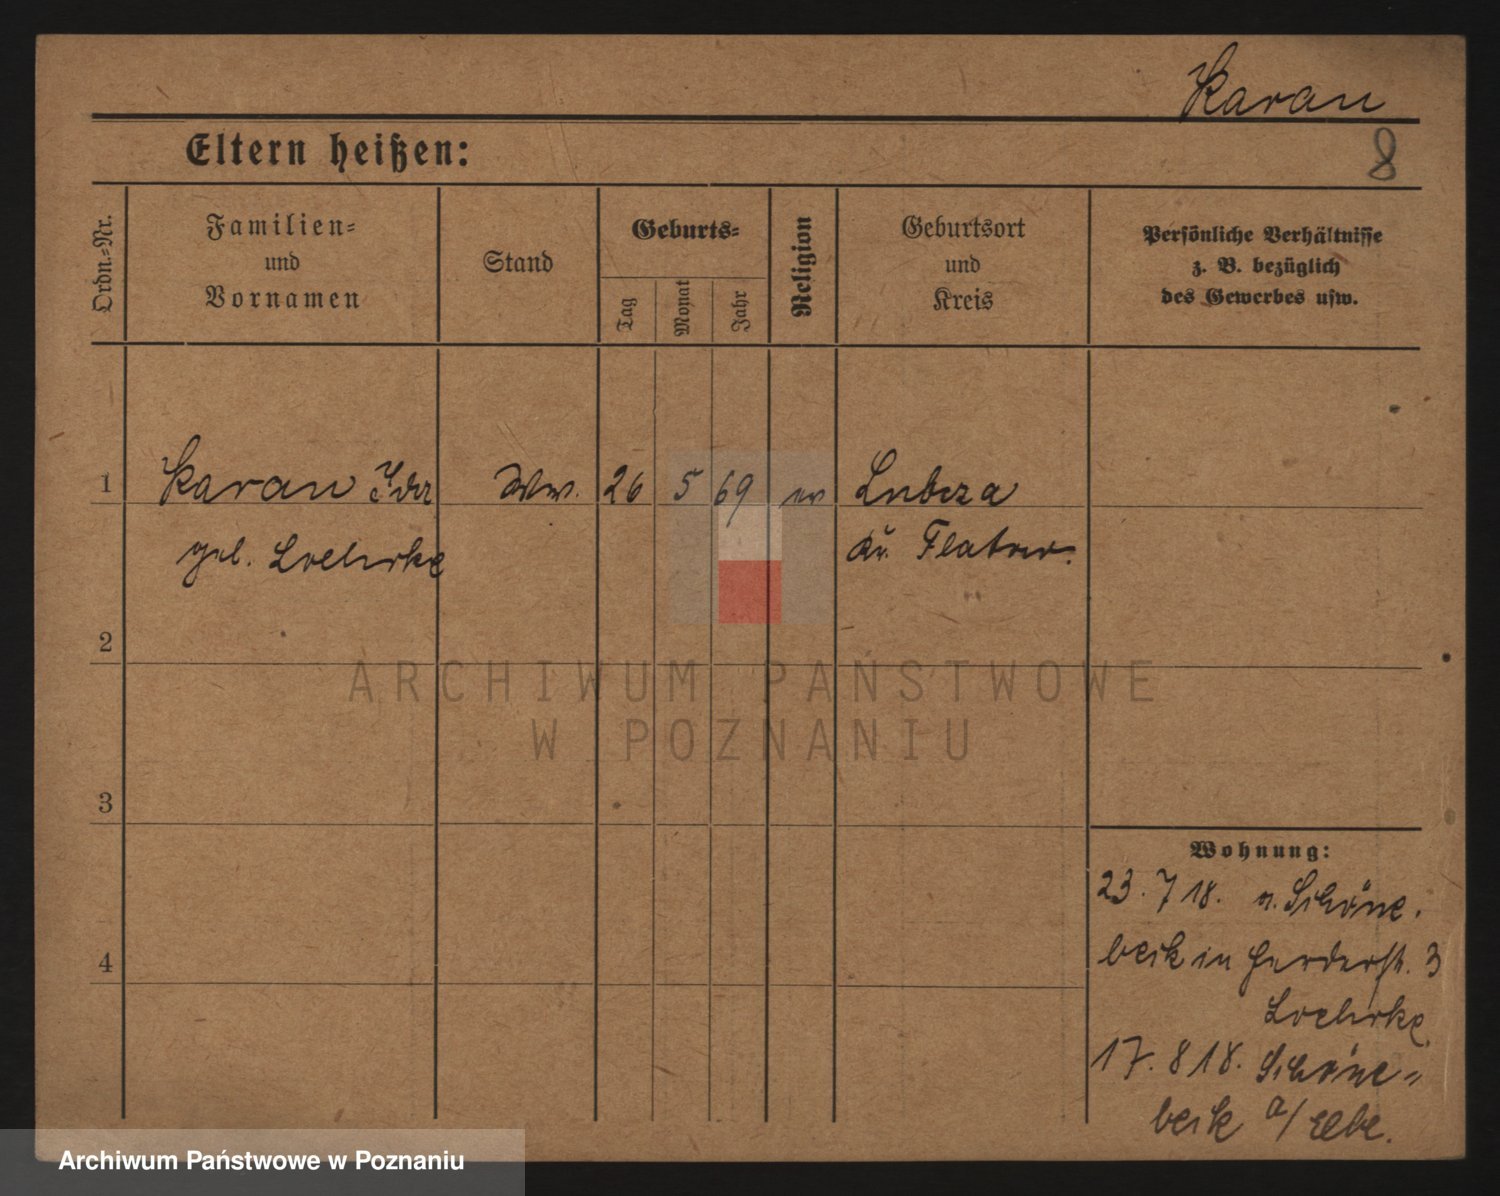 Karan
8
Eltern heißen:
Ordn.-Nr.
Familien-
und
Vornamen
Stand
Geburts-
Tag
Monat
Jahr
Religion
Geburtsort
und
Kreis
Persönliche Verhältnisse
z. B. bezüglich
des Gewerbes usw.
1 Karan Ida Ww. 26 5 69 ev Lubcza
geb. Loehrke Kr. Flatow.
2
3
4
Wohnung:
23. 7 18. a. Schöne.
beck in Herderstr. 3
Loehrke
17. 8 18. Schöne-
beck a/ Elbe.
ARCHIWUM PAŃSTWOWE
W POZNANIU
Archiwum Państwowe w Poznaniu